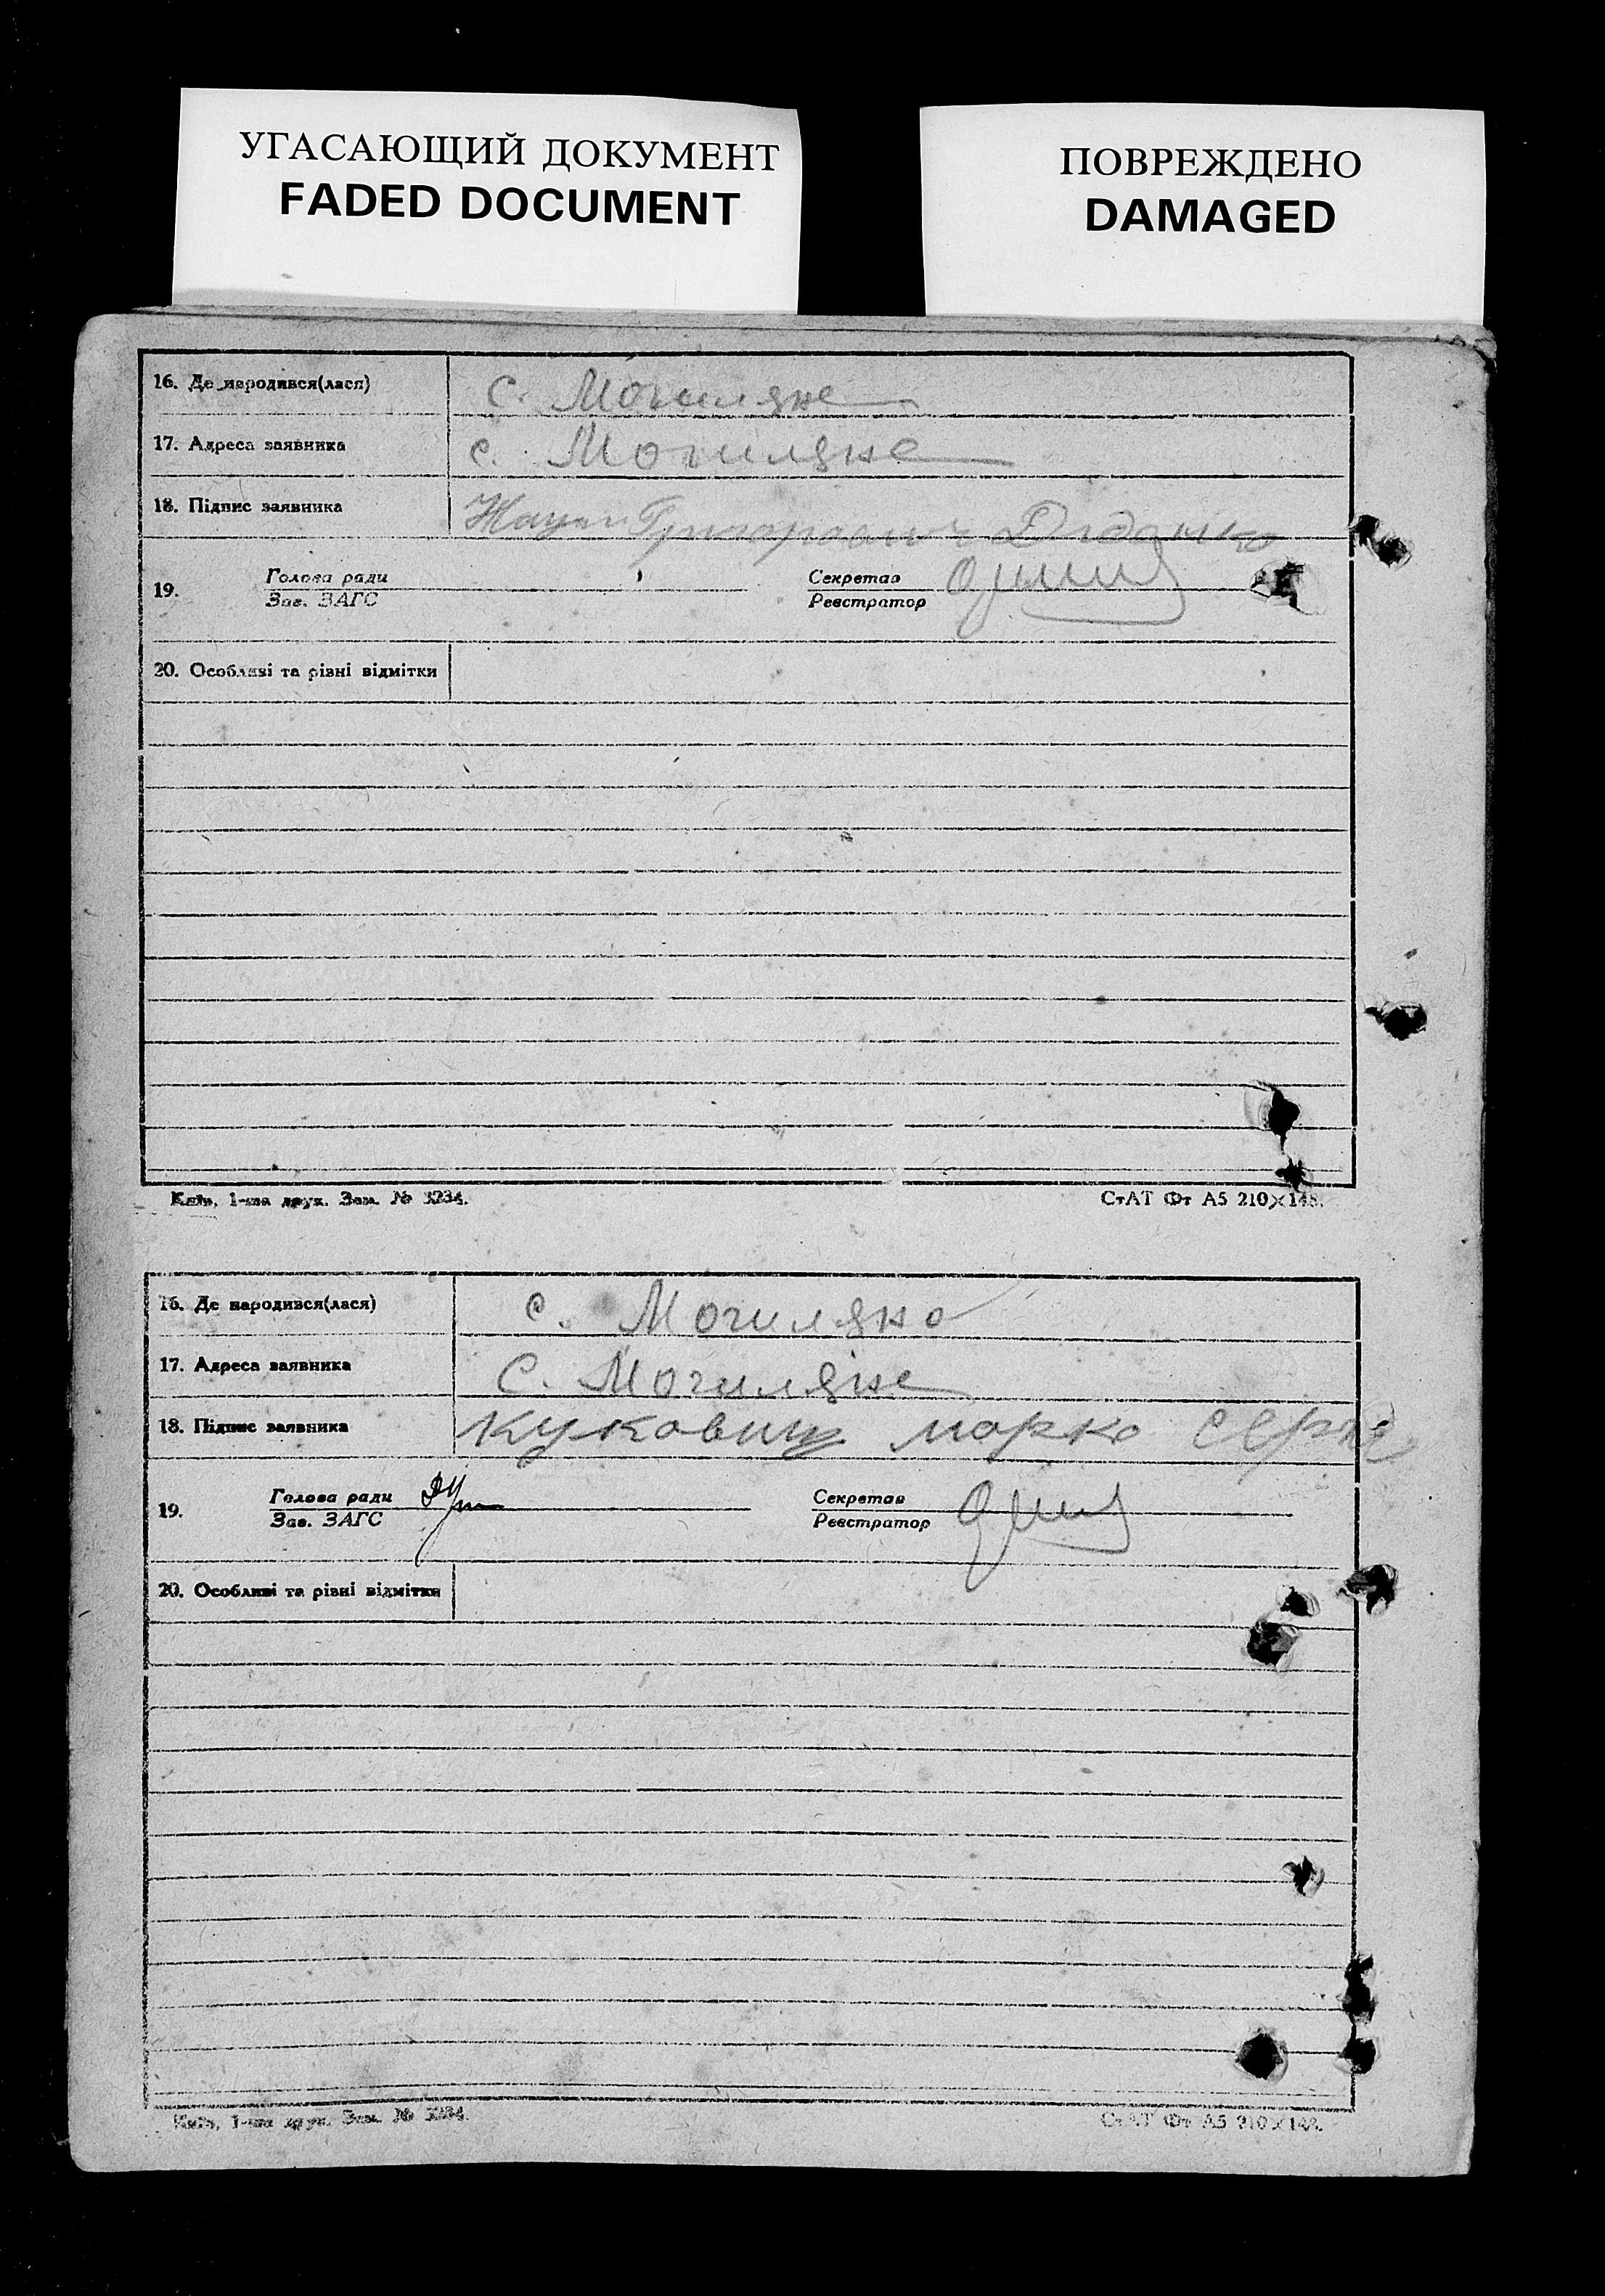 УГАСАЮЩИЙ ДОКУМЕНТ
FADED DOCUMENT
ПОВРЕЖДЕНО
DAMAGED
16. Де народився(лася)
с. Могиляне
17. Адреса заявника
с. Могиляне
18. Підпис заявника
19.
Голова ради
Зав. ЗАГС
Секретар
Реєстратор
20. Особливі та різні відмітки
Київ, 1-ша друк. Зам. № 3234.
СтАТ Фт А5 210×148.
16. Де народився(лася)
с. Могиляне
17. Адреса заявника
с. Могиляне
18. Підпис заявника
Марко
19.
Голова ради
Зав. ЗАГС
Секретар
Реєстратор
20. Особливі та різні відмітки
Київ, 1-ша друк. Зам. № 3234.
СтАТ Фт А5 210×148.